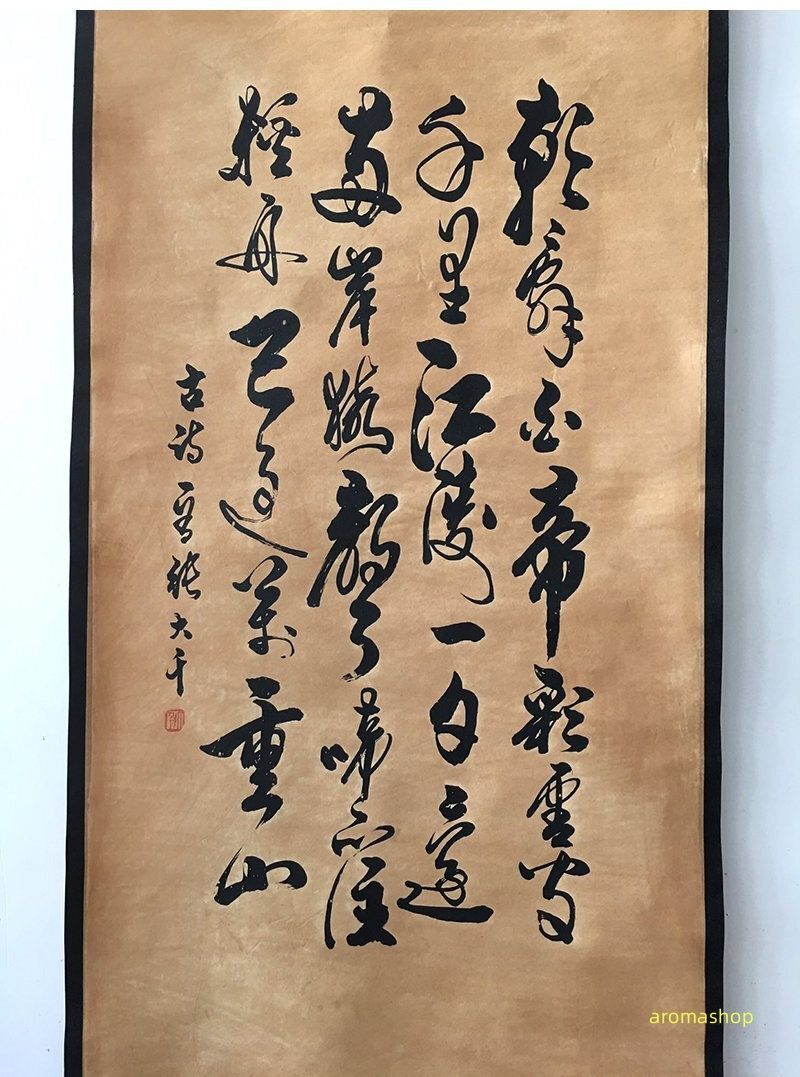 朝辞白帝彩雲間
千里江陵一日還
両岸猿聲啼不住
軽舟已過萬重山
古詩一首張大千
aromashop